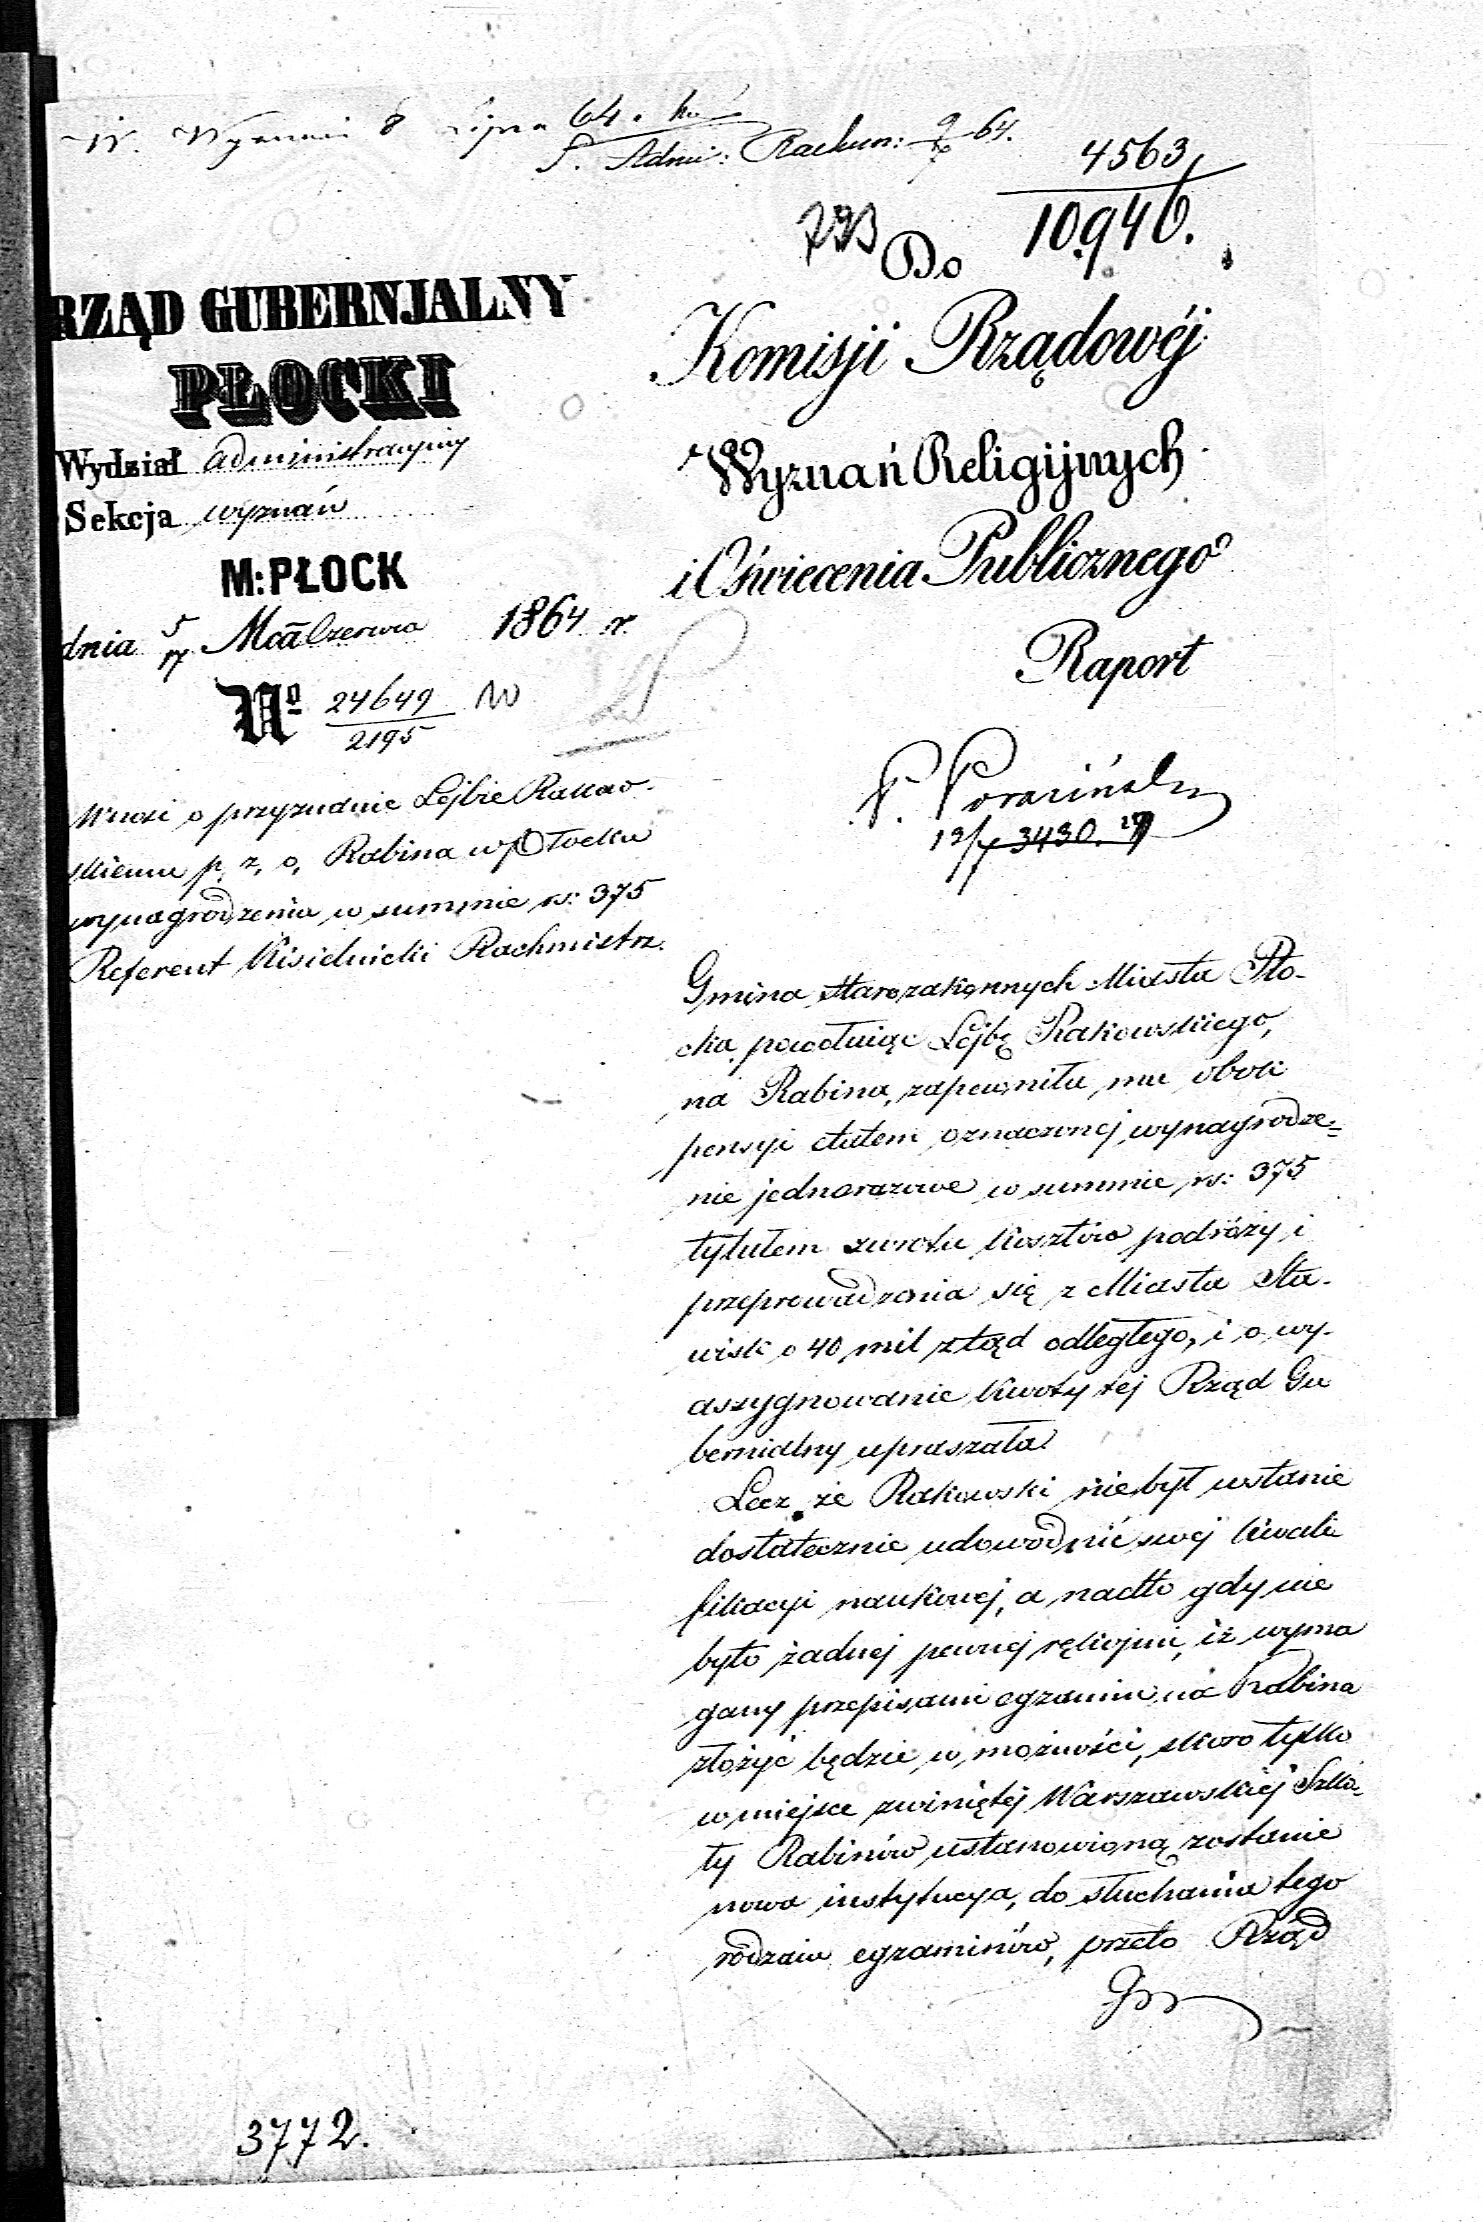 W. Wyznań 8 Lipca 64.
S. Admi: Rachun: 9/7 64.
4563
10,940.
793
Do
RZĄD GUBERNJALNY
PŁOCKI
Wydział administracyjny
Sekcja wyznań
M: PŁOCK
dnia 5/17 Mca Czerwca 1864 r.
No 24649
2195
Komisji Rządowéj
Wyznań Religijnych
i Oświecenia Publicznego
Raport
12/7 3430.
Wnosi o przyznanie Lejbie Rakow-
skiemu p. z. o. Rabina w Płocku
wynagrodzenia w summie rs: 375
Referent Kisielnicki Rachmistrz.
Gmina starozakonnych Miasta Pło-
cka powołując Lejbę Rakowskiego,
na Rabina, zapewniła mu obok
pensyi etatem oznaczonej wynagrodze=
nie jednorazowe w summie rs: 375
tytułem zwrotu kosztów podróży i
przeprowadzenia się z Miasta Sta-
wisk o 40 mil ztąd odległego, i o wy-
assygnowanie kwoty tej Rząd Gu
bernialny upraszała.
Lecz że Rakowski niebył wstanie
dostatecznie udowodnić swej kwali
fikacyi naukowej, a nadto gdy nie
było żadnej pewnej rękojmi, iż wyma
gany przepisami egzamin na Rabina
złożyć będzie w możności, skoro tylko
w miejsce zwiniętéj Warszawskiéj Szko-
ły Rabinów ustanowioną zostanie
nowa instytucya, do słuchania tego
rodzaiu egzaminów, przeto Rząd
3772.